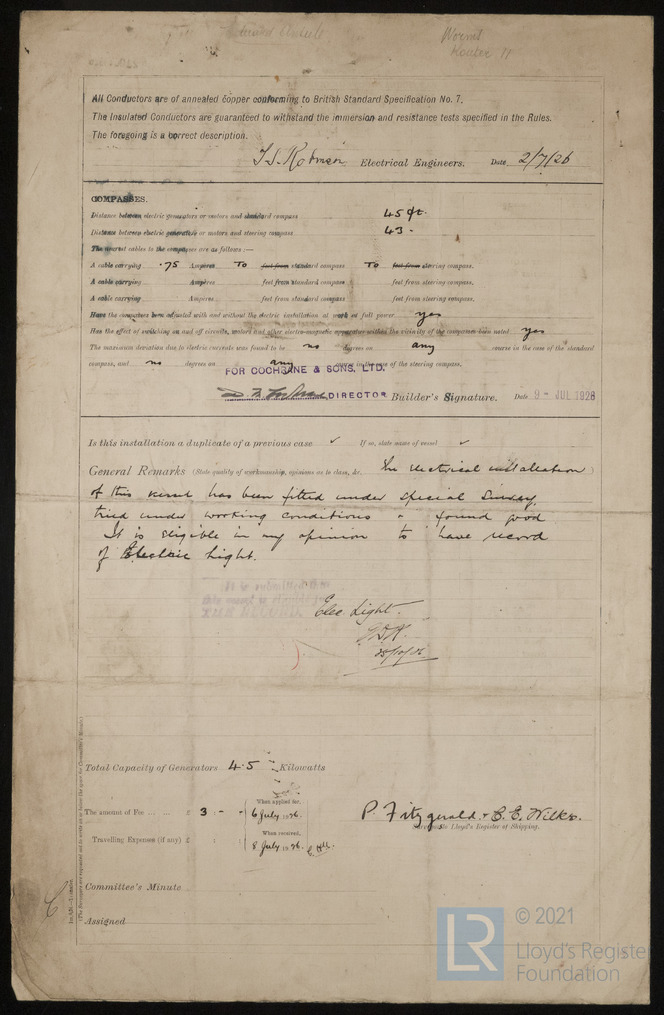 All Conductors are of annealed copper conforming to British Standard Specification No. 7.
The Insulated Conductors are guaranteed to withstand the immersion and resistance tests specified in the Rules.
The foregoing is a correct description.
Electrical Engineers. Date 2/7/26
COMPASSES.
Distance between electric generators or motors and standard compass 45 ft.
Distance between electric generators or motors and steering compass 43 .
The nearest cables to the compasses are as follows :—
A cable carrying .75 Ampères To feet from standard compass To feet from steering compass.
A cable carrying Ampères feet from standard compass feet from steering compass.
A cable carrying Ampères feet from standard compass feet from steering compass.
Have the compasses been adjusted with and without the electric installation at work at full power yes
Has the effect of switching on and off circuits, motors and other electro-magnetic apparatus within the vicinity of the compasses been noted yes
The maximum deviation due to electric currents was found to be no degrees on any course in the case of the standard
compass, and no degrees on any course in the case of the steering compass.
FOR COCHRANE & SONS, LTD.
DIRECTOR Builder's Signature. Date 9 - JUL 1926
Is this installation a duplicate of a previous case ✓ If so, state name of vessel ✓
General Remarks (State quality of workmanship, opinions as to class, &c. The electrical installation )
of this vessel has been fitted under special survey,
tried under working conditions & found good
It is eligible in my opinion to have record
of Electric Light.
It is submitted that
this vessel is eligible for
THE RECORD.
Elec Light.
Total Capacity of Generators 4.5 Kilowatts
The amount of Fee ... ... £ 3 : - : -
When applied for,
6 July 1926.
Travelling Expenses (if any) £ : :
When received,
8 July 1926.
P. Fitzgerald & C. E. Wilks.
Surveyor to Lloyd's Register of Shipping.
Committee's Minute
Assigned
© 2021
LR
Lloyd's Register
Foundation